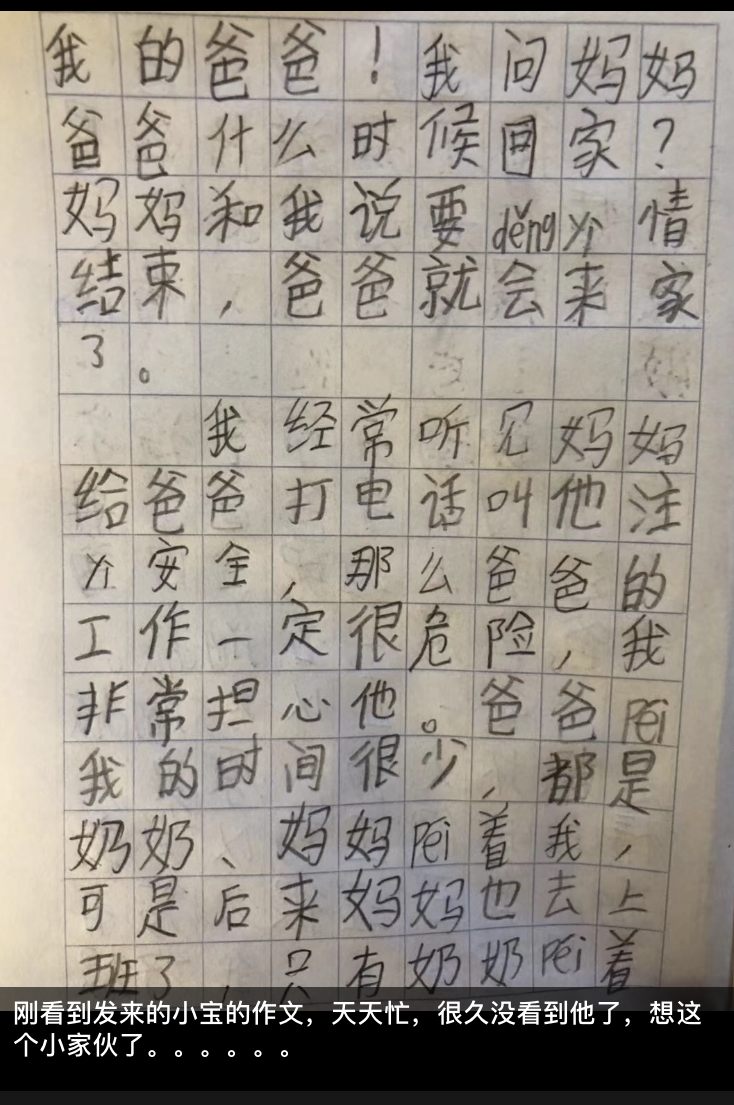 我的爸爸！我问妈妈
爸爸什么时候回家？
妈妈和我说要děngyì情
结束，爸爸就会来家
了。
我经常听见妈妈
给爸爸打电话叫他注
yì安全，那么爸爸的
工作一定很危险，我
非常担心他。爸爸péi
我的时间很少，都是
奶奶、妈妈péi着我，
可是后来妈妈也去上
班了，只有奶奶péi着
刚看到发来的小宝的作文，天天忙，很久没看到他了，想这
个小家伙了。。。。。。